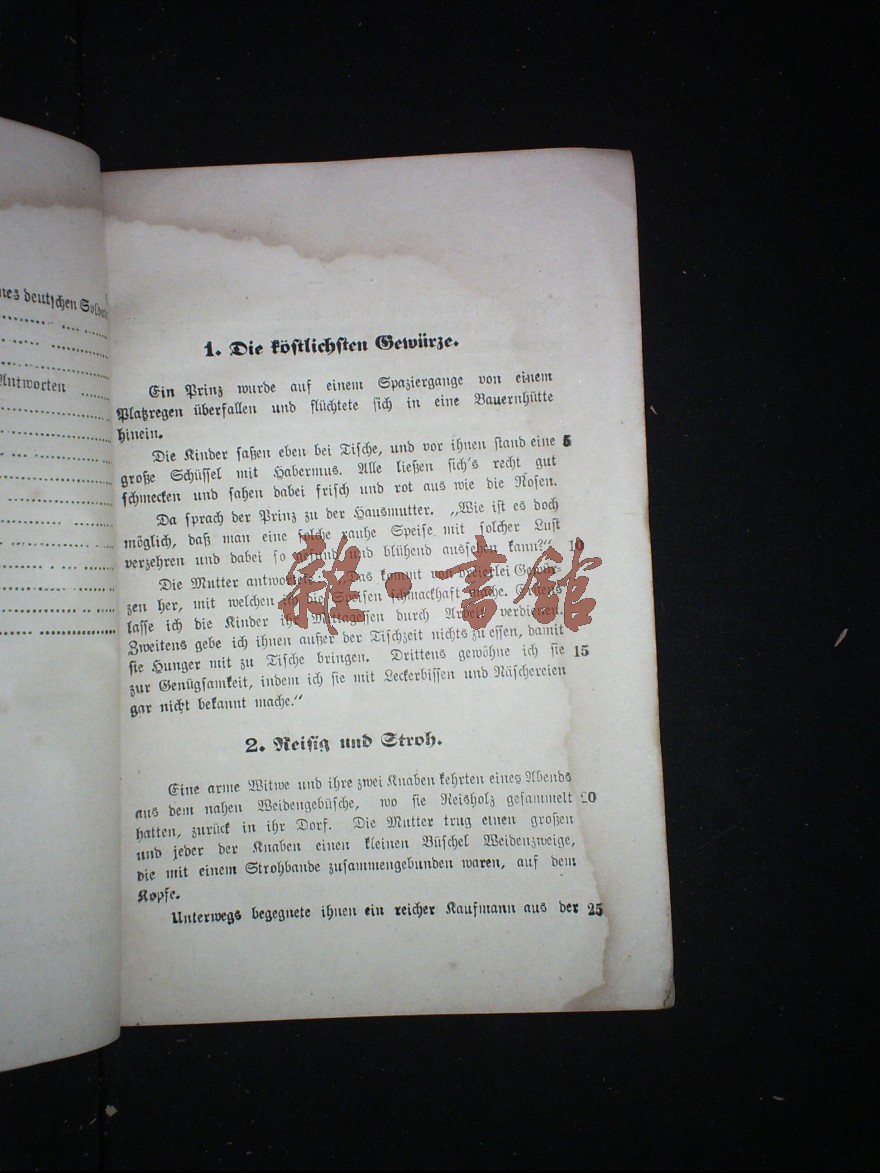 nes deutschen Solda
Antworten
1. Die köstlichsten Gewürze.
Ein Prinz wurde auf einem Spaziergange von einem
Platzregen überfallen und flüchtete sich in eine Bauernhütte
hinein.
Die Kinder saßen eben bei Tische, und vor ihnen stand eine 5
große Schüssel mit Habermus. Alle ließen sich's recht gut
schmecken und sahen dabei frisch und rot aus wie die Rosen.
Da sprach der Prinz zu der Hausmutter. „Wie ist es doch
möglich, daß man eine solche rauhe Speise mit solcher Lust
verzehren und dabei so gesund und blühend aussehen kann?" 10
Die Mutter antwortete: „Das kommt von dreierlei Gewür-
zen her, mit welchen ich die Speisen schmackhaft mache. Erstens
lasse ich die Kinder ihr Mittagessen durch Arbeit verdienen.
Zweitens gebe ich ihnen außer der Tischzeit nichts zu essen, damit
sie Hunger mit zu Tische bringen. Drittens gewöhne ich sie 15
zur Genügsamkeit, indem ich sie mit Leckerbissen und Näschereien
gar nicht bekannt mache."
2. Reisig und Stroh.
Eine arme Witwe und ihre zwei Knaben kehrten eines Abends
aus dem nahen Weidengebüsche, wo sie Reisholz gesammelt 20
hatten, zurück in ihr Dorf. Die Mutter trug einen großen
und jeder der Knaben einen kleinen Büschel Weidenzweige,
die mit einem Strohbande zusammengebunden waren, auf dem
Kopfe.
Unterwegs begegnete ihnen ein reicher Kaufmann aus der 25
雜·書館